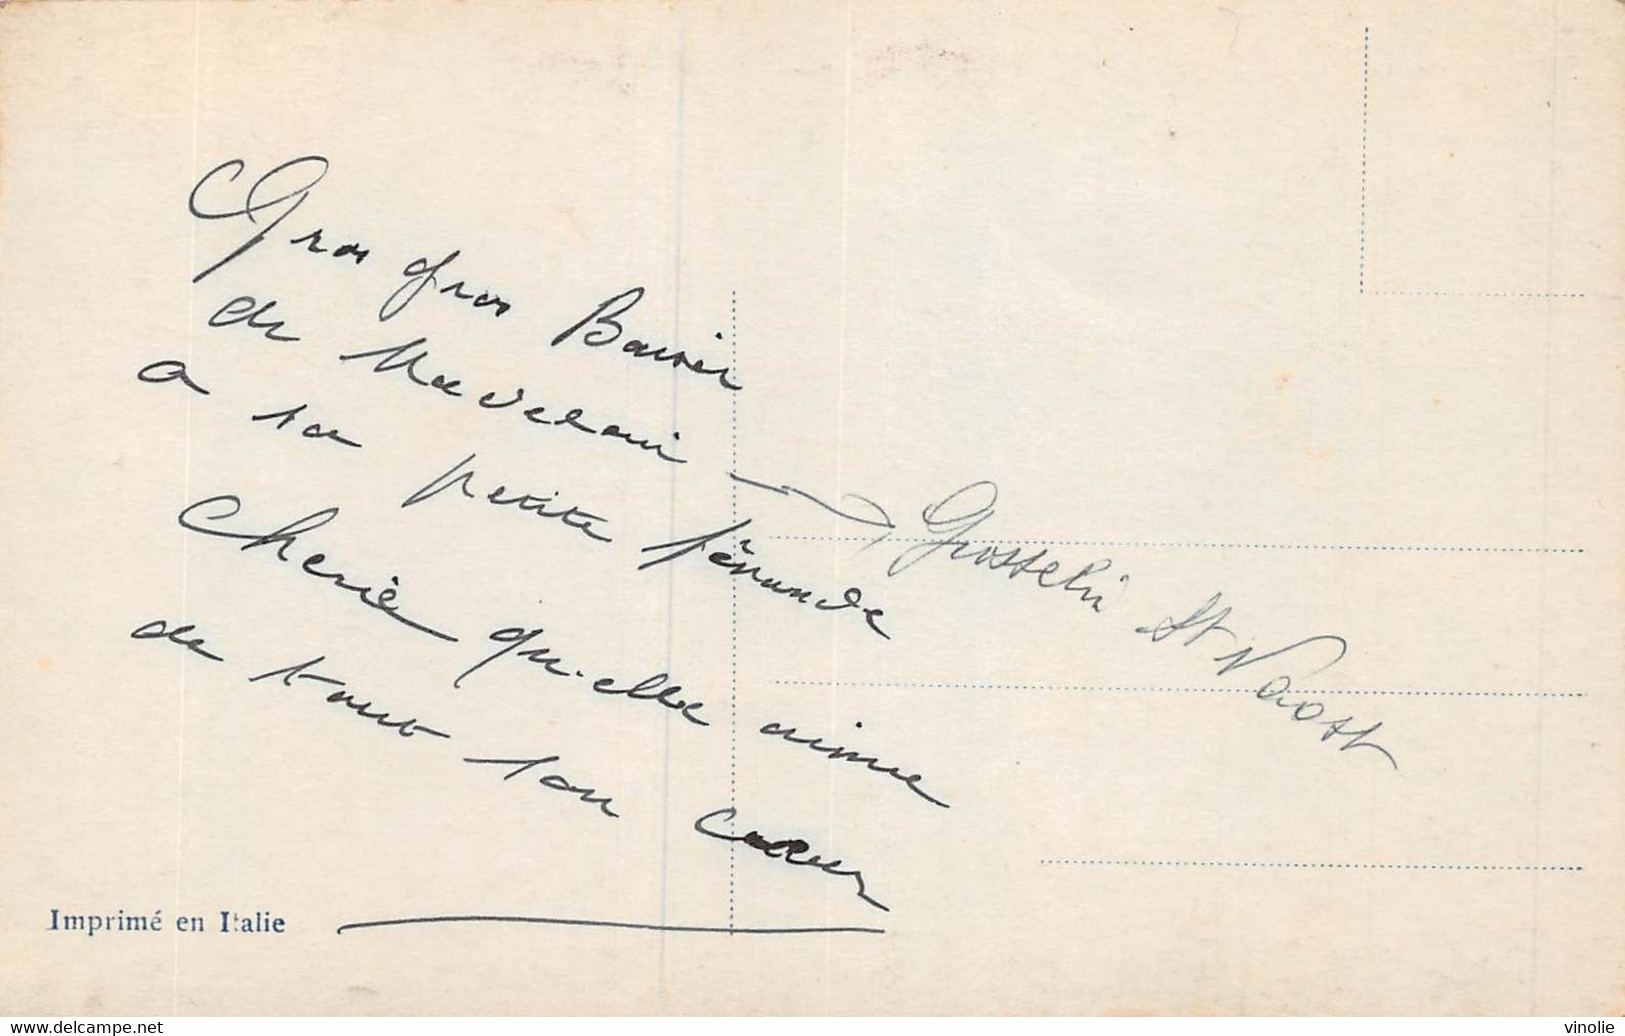 Gros gros Baiser
de Madelaine
a sa petite fernande
Cherie qu'elle aime
de tout son coeur
Grosselin St Vaast
Imprimé en Italie
delcampe.net
vinolie